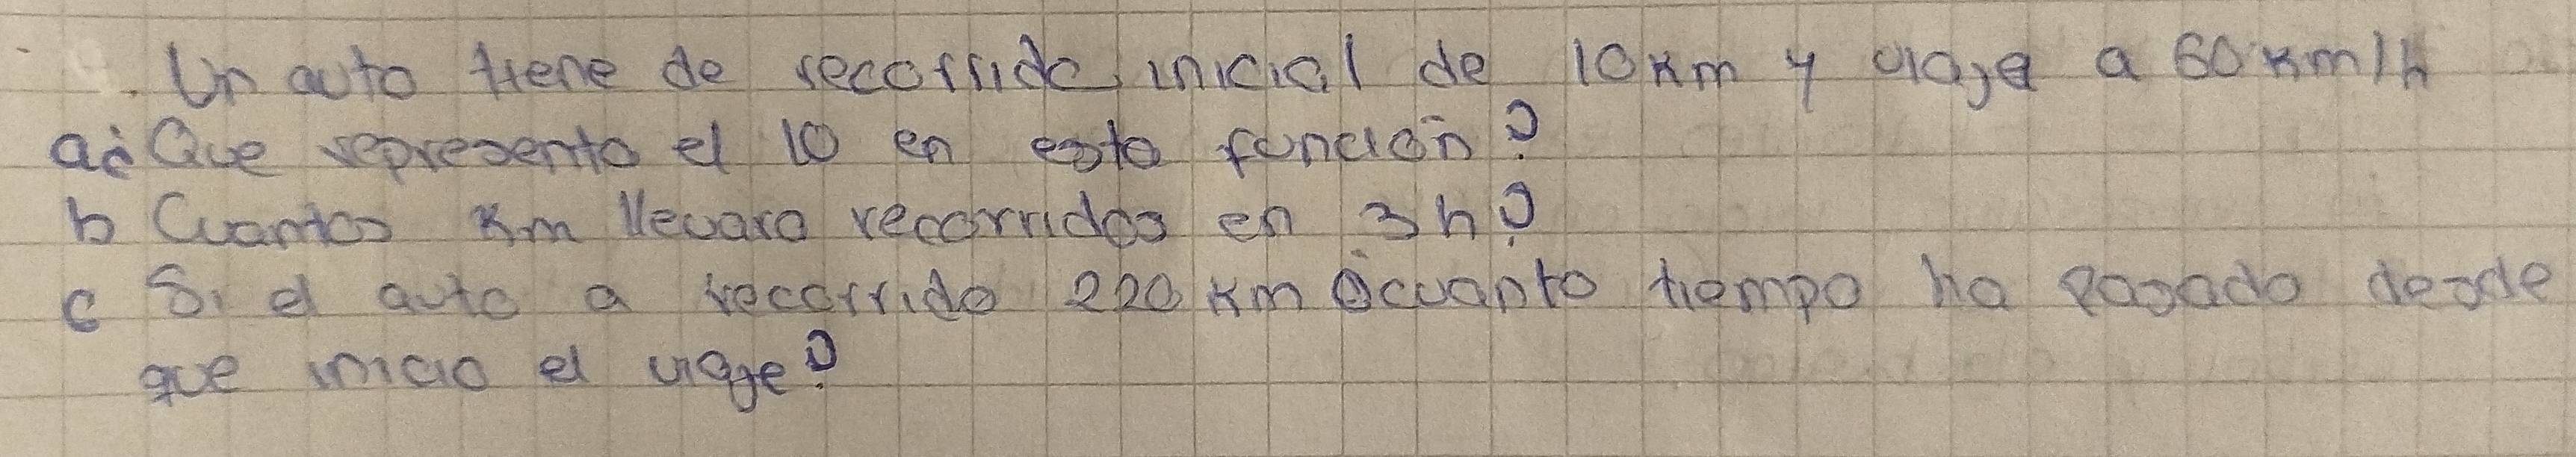 . Un auto tiene de recorrido inicial de 10 Km y viaje a 60 Km/h
a¿ Que representa el 10 en esta función?
b Cuantos Km llevara recorridos en 3h?
c Si el auto a recorrido 220 Km ¿cuanto tiempo ha pasado desde
que inicio el viaje?